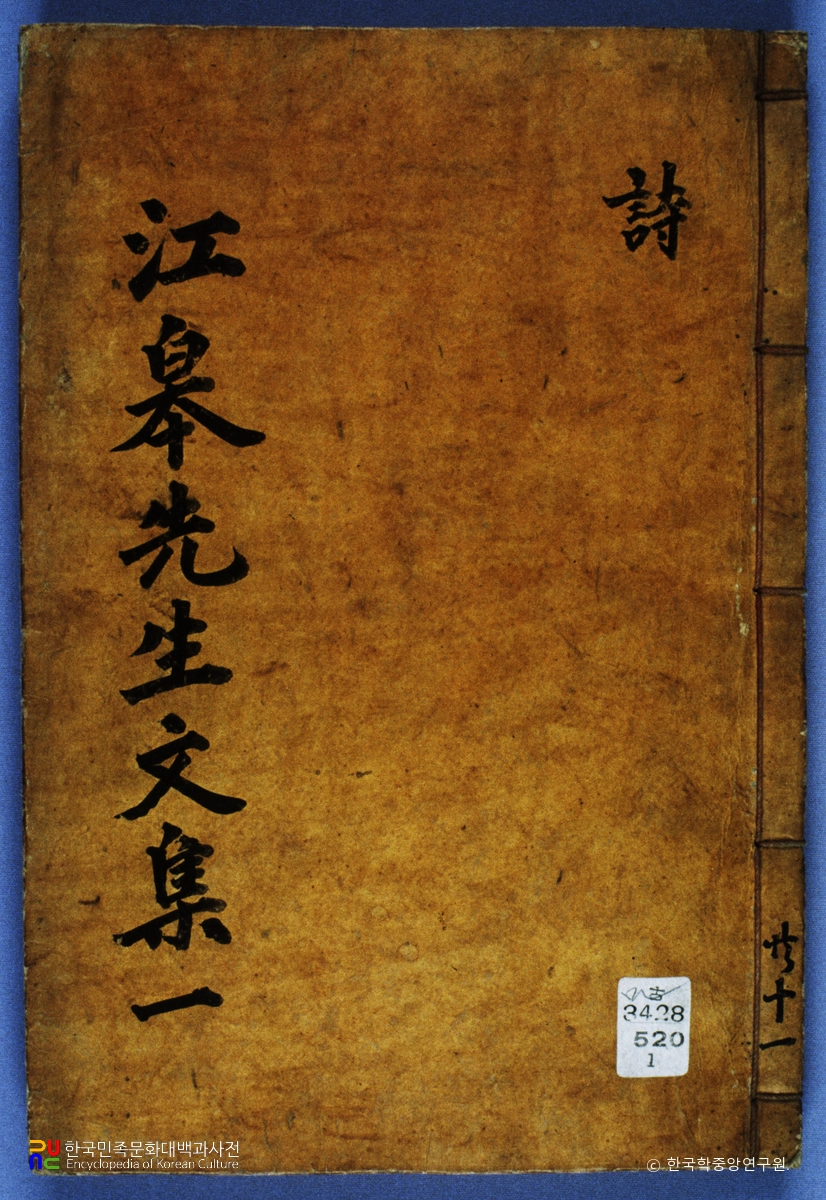 江皐先生文集一
詩
共十一
古
3428
520
1
한국민족문화대백과사전
Encyclopedia of Korean Culture
© 한국학중앙연구원